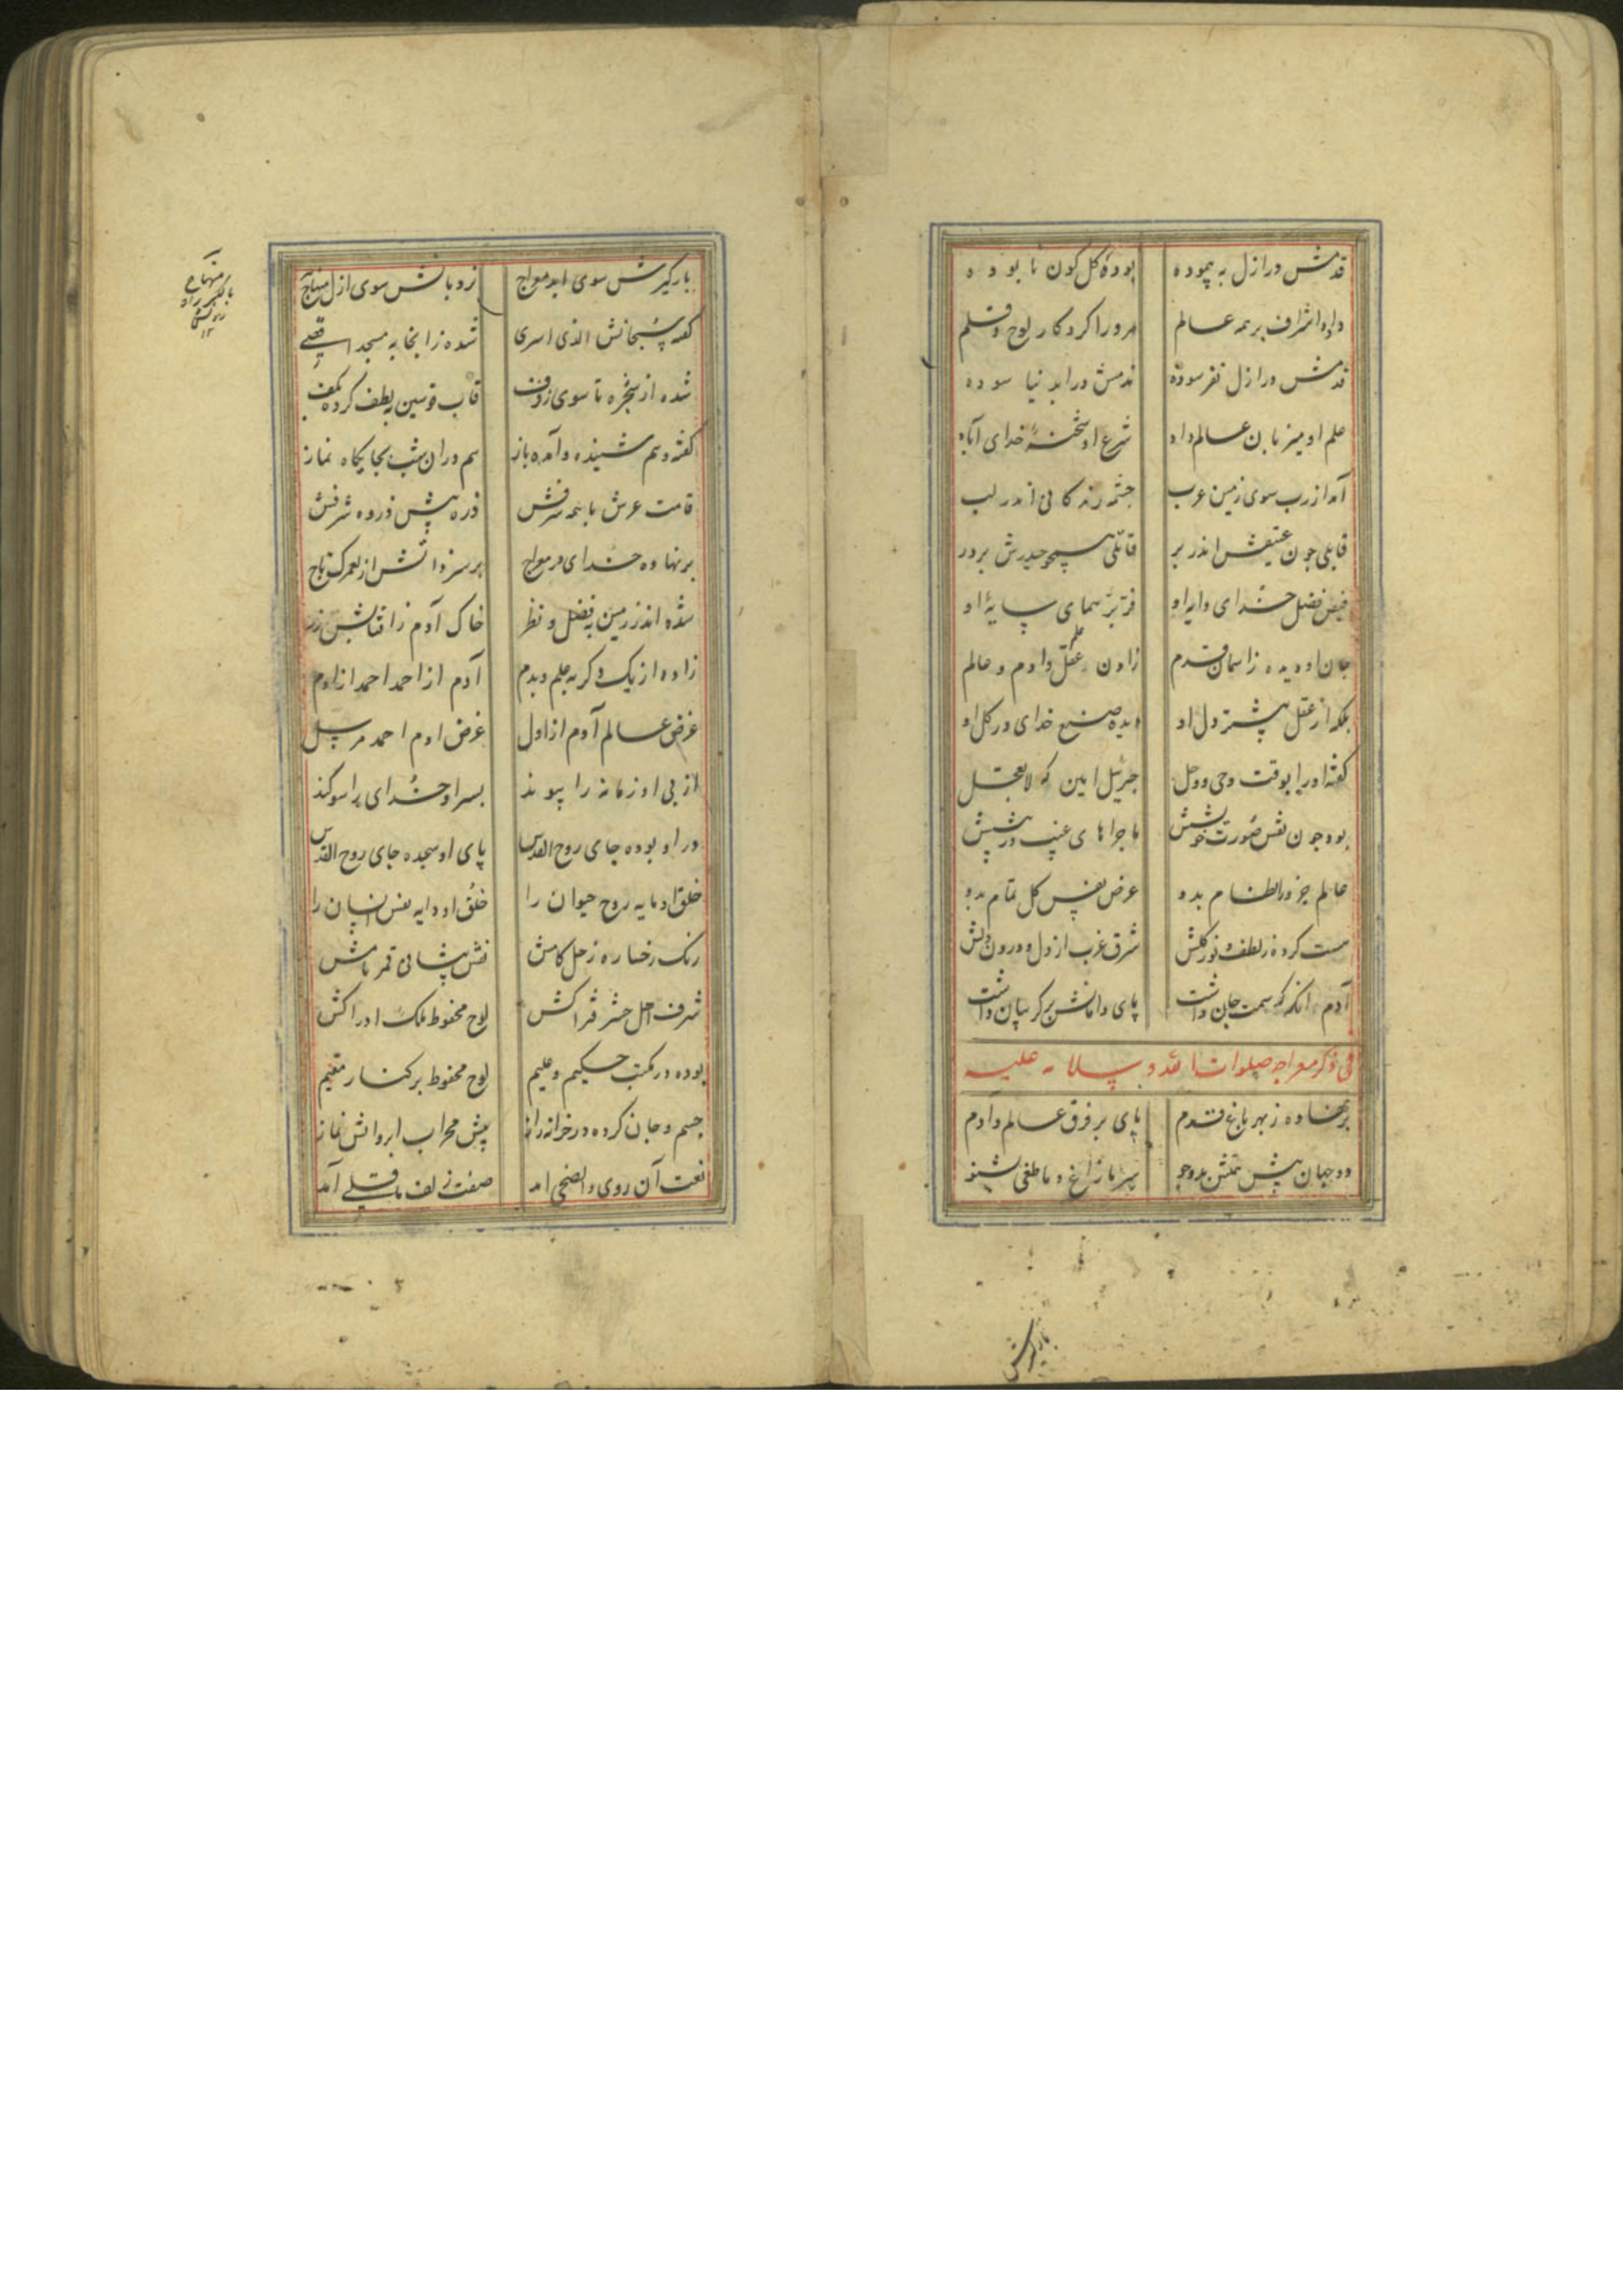 قدمش در ازل به پیموده بوده کل کون نا بوده
داده اشراف بر همه عالم مرورا کردکار لوح و قلم
قدمش در ازل نفرسوده ندمش در ابد نیا سوده
علم او میزبان عالم داد شرع او شحنهٔ خدای آباد
آمد از رب سوی زمین عرب چشمه زندکانی اندر لب
قابلی چون عتیقش اندر بر قاتلی همچو حیدرش بر در
فیض فضل خدای دایه او فر پر همای سایهٔ او
جان او دیده ز آسمان قدم زادن عقل و ادم و عالم علم
بلکه از عقل پیشتر دل او دیده صنع خدای در کل او
گفته اورا بوقت وحی و وجل جبرئیل امین که لا تعجل
بوده چون نقش صورت خویشش ماجراهای غیب در پیشش
عالم جزو را نظام بدو عرض نفس کل تمام بدو
مست کرده ز لطف و نور کلش شرق و غرب از دل و درون دلش
آدم انکه که سمت جان داشت پای دامانش بر کریبان داشت
فی ذکر معراجه صلوات الله و سلامه علیه
بر نهاده ز بهر باغ قدم پای بر فرق عالم و آدم
دو جهان پیش همتش بدو جو سر ما زاغ و ما طغی بشنو
بارکیرش
بارکیرش سوی ابد معراج نردبانش سوی ازل منهاج
گفته سبحانش الذی اسری شده ز انجا به مسجد اقصی
شده از صخره تا سوی رفرف قاب قوسین لطف کرده بکف
گفته و هم شنیده و آمده باز هم در ان شب بجایکاه نماز
قامت عرش با همه شرفش ذره پیش ذروه شرفش
بر نهاده خدای در معراج بر سر ذاتش از لعمرک تاج
شده اندر زمین به فضل و نظر خاک آدم ز آفتابش زر
زاده از یک دگر به علم و بدم آدم از احمد احمد از ادم
غرض عالم آدم از اول غرض ادم احمد مرسل
از پی او زمانه را پیوند بسر او خدای را سوگند
در او بوده جای روح القدس پای او سجده جای روح القدس
خلق او مایه روح حیوان را خلق او دایه نفس انسان را
رنک رخساره زحل کامش نقش پیشانی قمر نامش
شرف اهل حشر فتراکش لوح محفوظ ملک ادراکش
بوده در مکتب حکیم و علیم لوح محفوظ بر کنار مقیم
جسم و جان کرده در خزانه راز پیش محراب ابروانش نماز
نعت آن روی والضحی امد صفت زلف